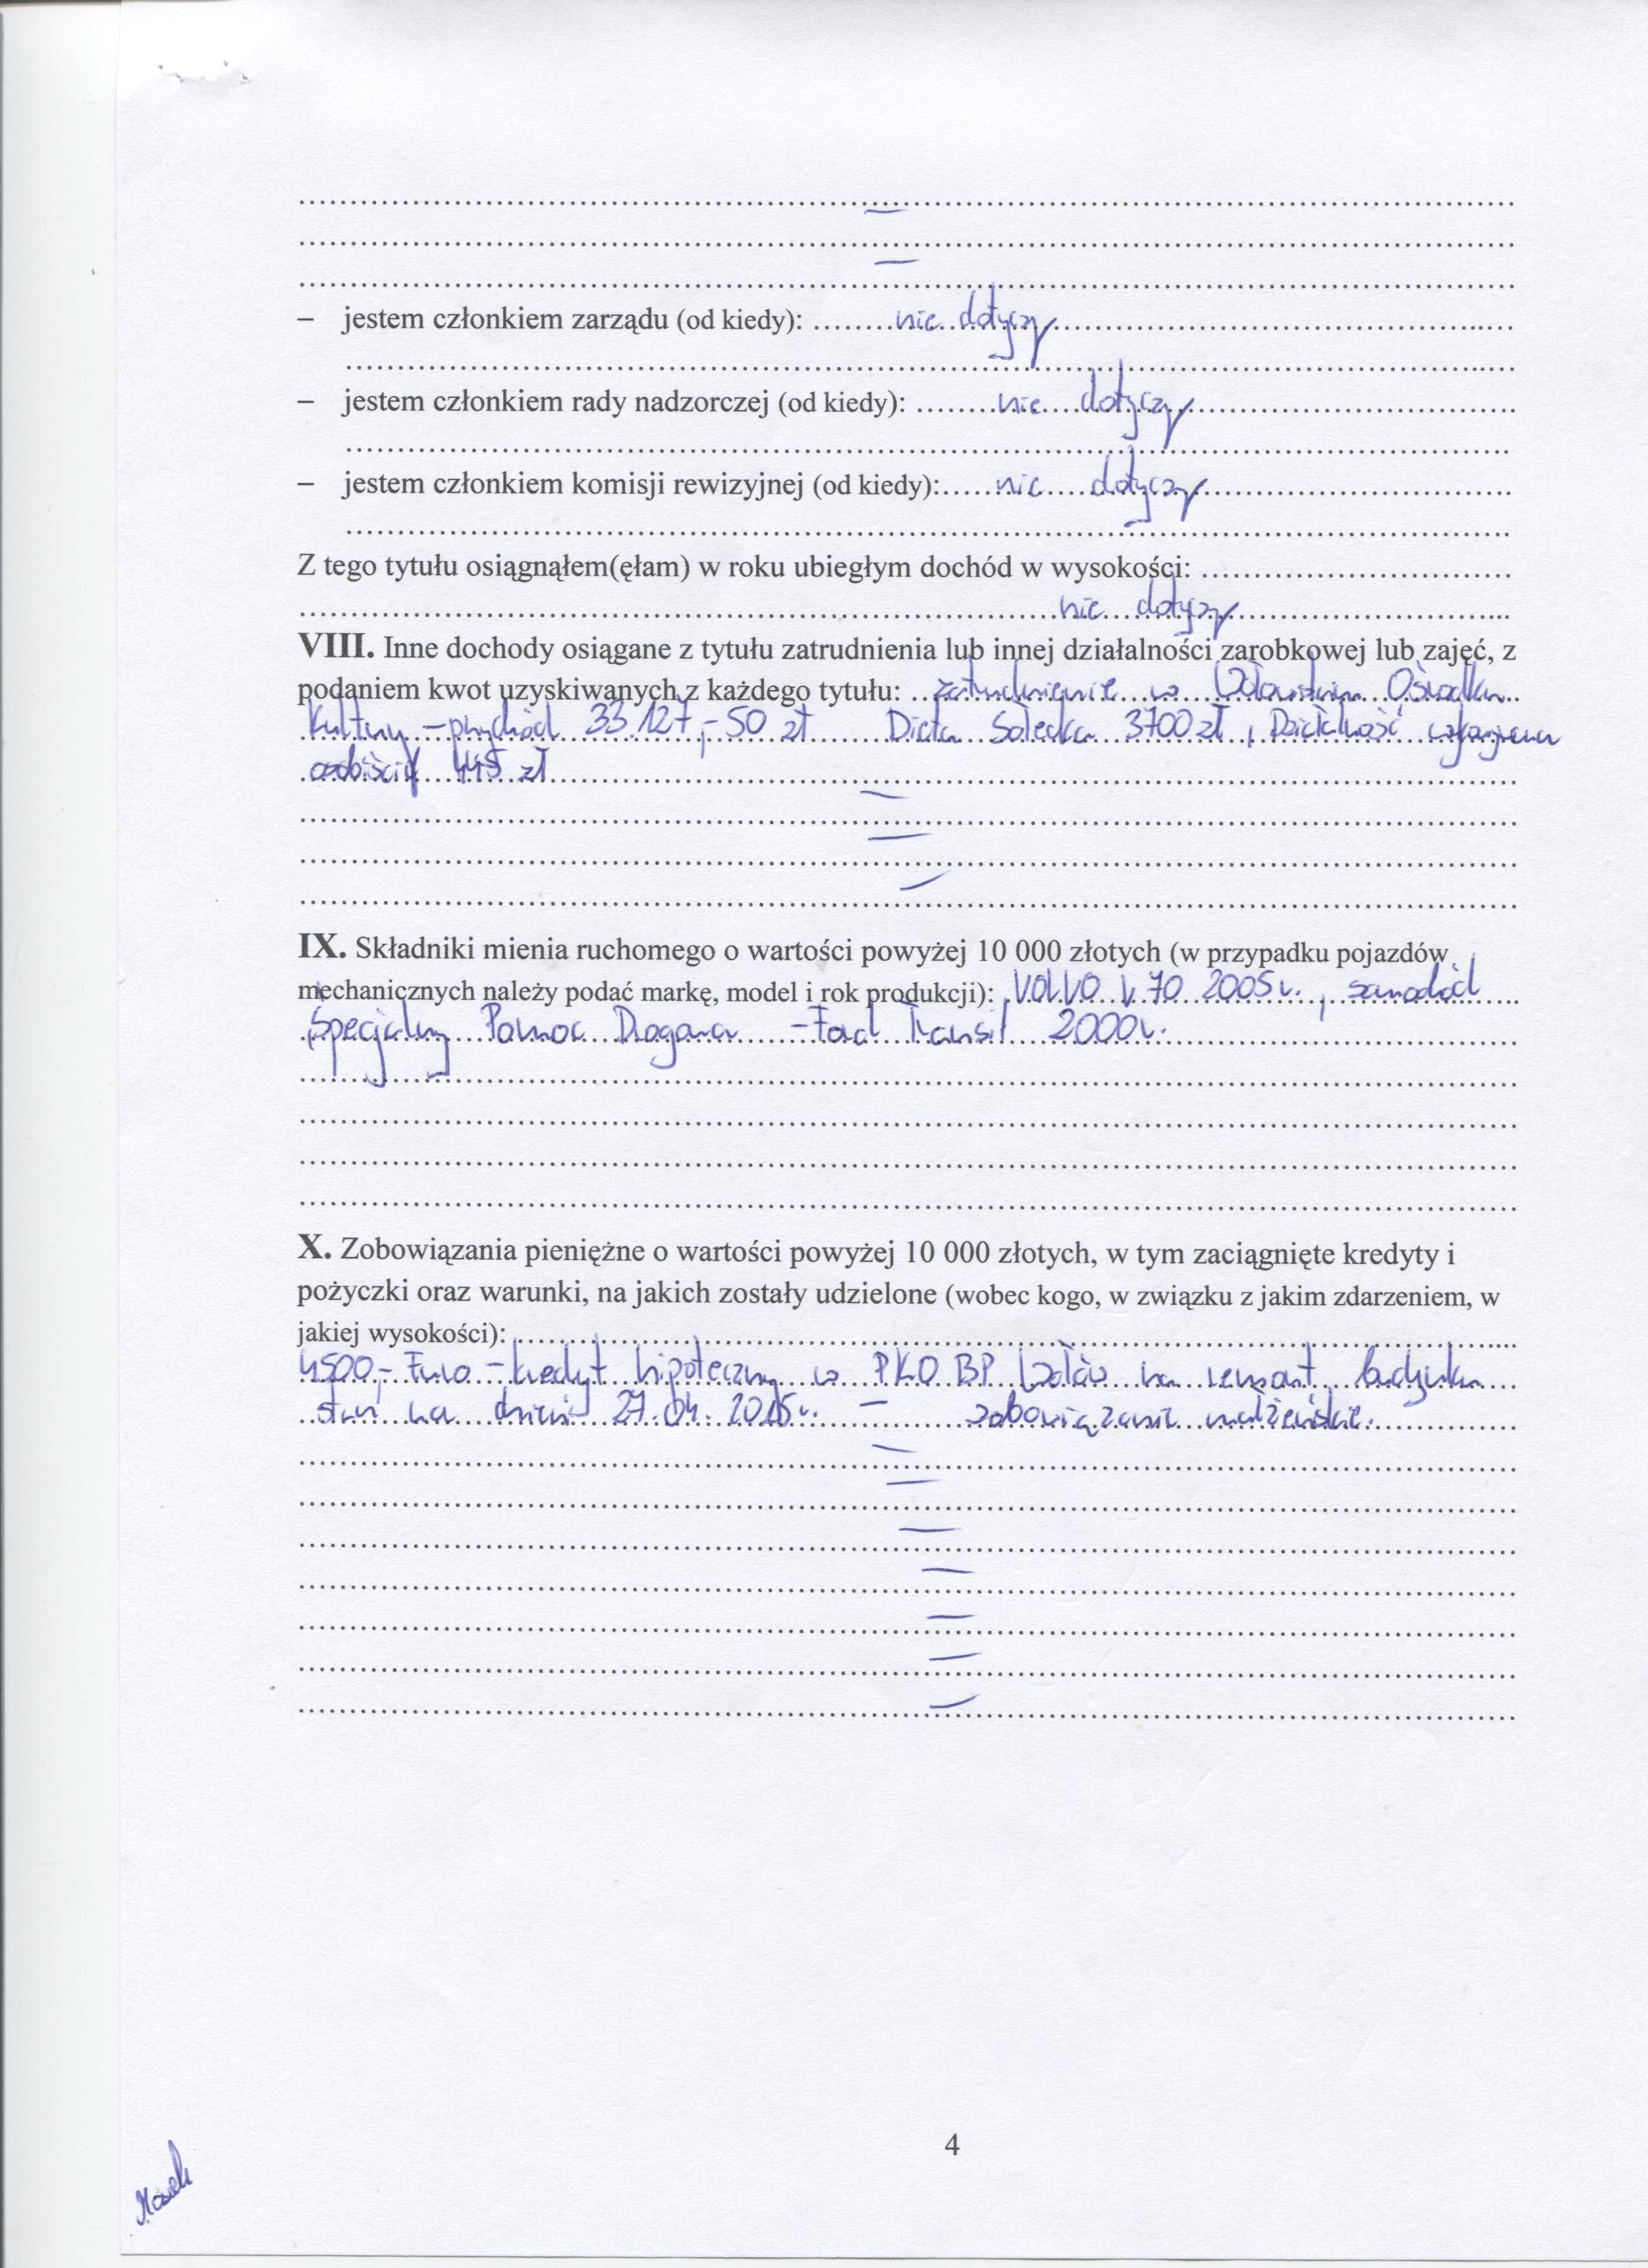 – jestem członkiem zarządu (od kiedy): ........nie dotyczy
– jestem członkiem rady nadzorczej (od kiedy): ........nie dotyczy
– jestem członkiem komisji rewizyjnej (od kiedy):.....nie dotyczy
Z tego tytułu osiągnąłem(ęłam) w roku ubiegłym dochód w wysokości: ................................
nie dotyczy
VIII. Inne dochody osiągane z tytułu zatrudnienia lub innej działalności zarobkowej lub zajęć, z
podaniem kwot uzyskiwanych z każdego tytułu: zatrudnienie w Ośrodku
Kultury – przychód 33.127,-50 zł Dieta Sołecka 3700 zł, Działalność wykonywana
osobiście 445 zł
IX. Składniki mienia ruchomego o wartości powyżej 10 000 złotych (w przypadku pojazdów
mechanicznych należy podać markę, model i rok produkcji): VOLVO V 70 2005 r., samochód
Specjalny Pomoc Drogowa – Ford Transit 2000 r.
X. Zobowiązania pieniężne o wartości powyżej 10 000 złotych, w tym zaciągnięte kredyty i
pożyczki oraz warunki, na jakich zostały udzielone (wobec kogo, w związku z jakim zdarzeniem, w
jakiej wysokości):
4500,- Euro – kredyt hipoteczny w PKO BP na remont budynku
stan na dzień 27.04.2015 r. – zobowiązanie małżeńskie.
4